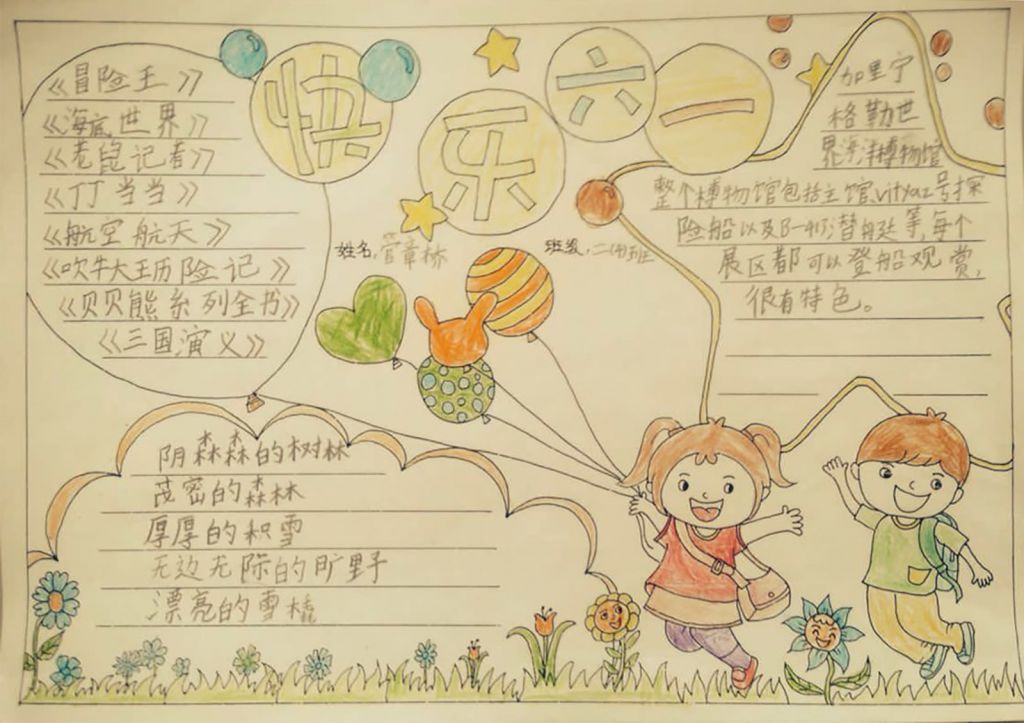 快乐六一
《冒险王》
《海底世界》
《老鼠记者》
《丁丁当当》
《航空航天》
《吹牛大王历险记》
《贝贝熊系列全书》
《三国演义》
姓名:管章栋
班级:二(4)班
加里宁
格勒世
界海洋博物馆
整个博物馆包括主馆、vityaz号探
险船以及B-413潜艇等,每个
展区都可以登船观赏,
很有特色。
阴森森的树林
茂密的森林
厚厚的积雪
无边无际的旷野
漂亮的雪橇